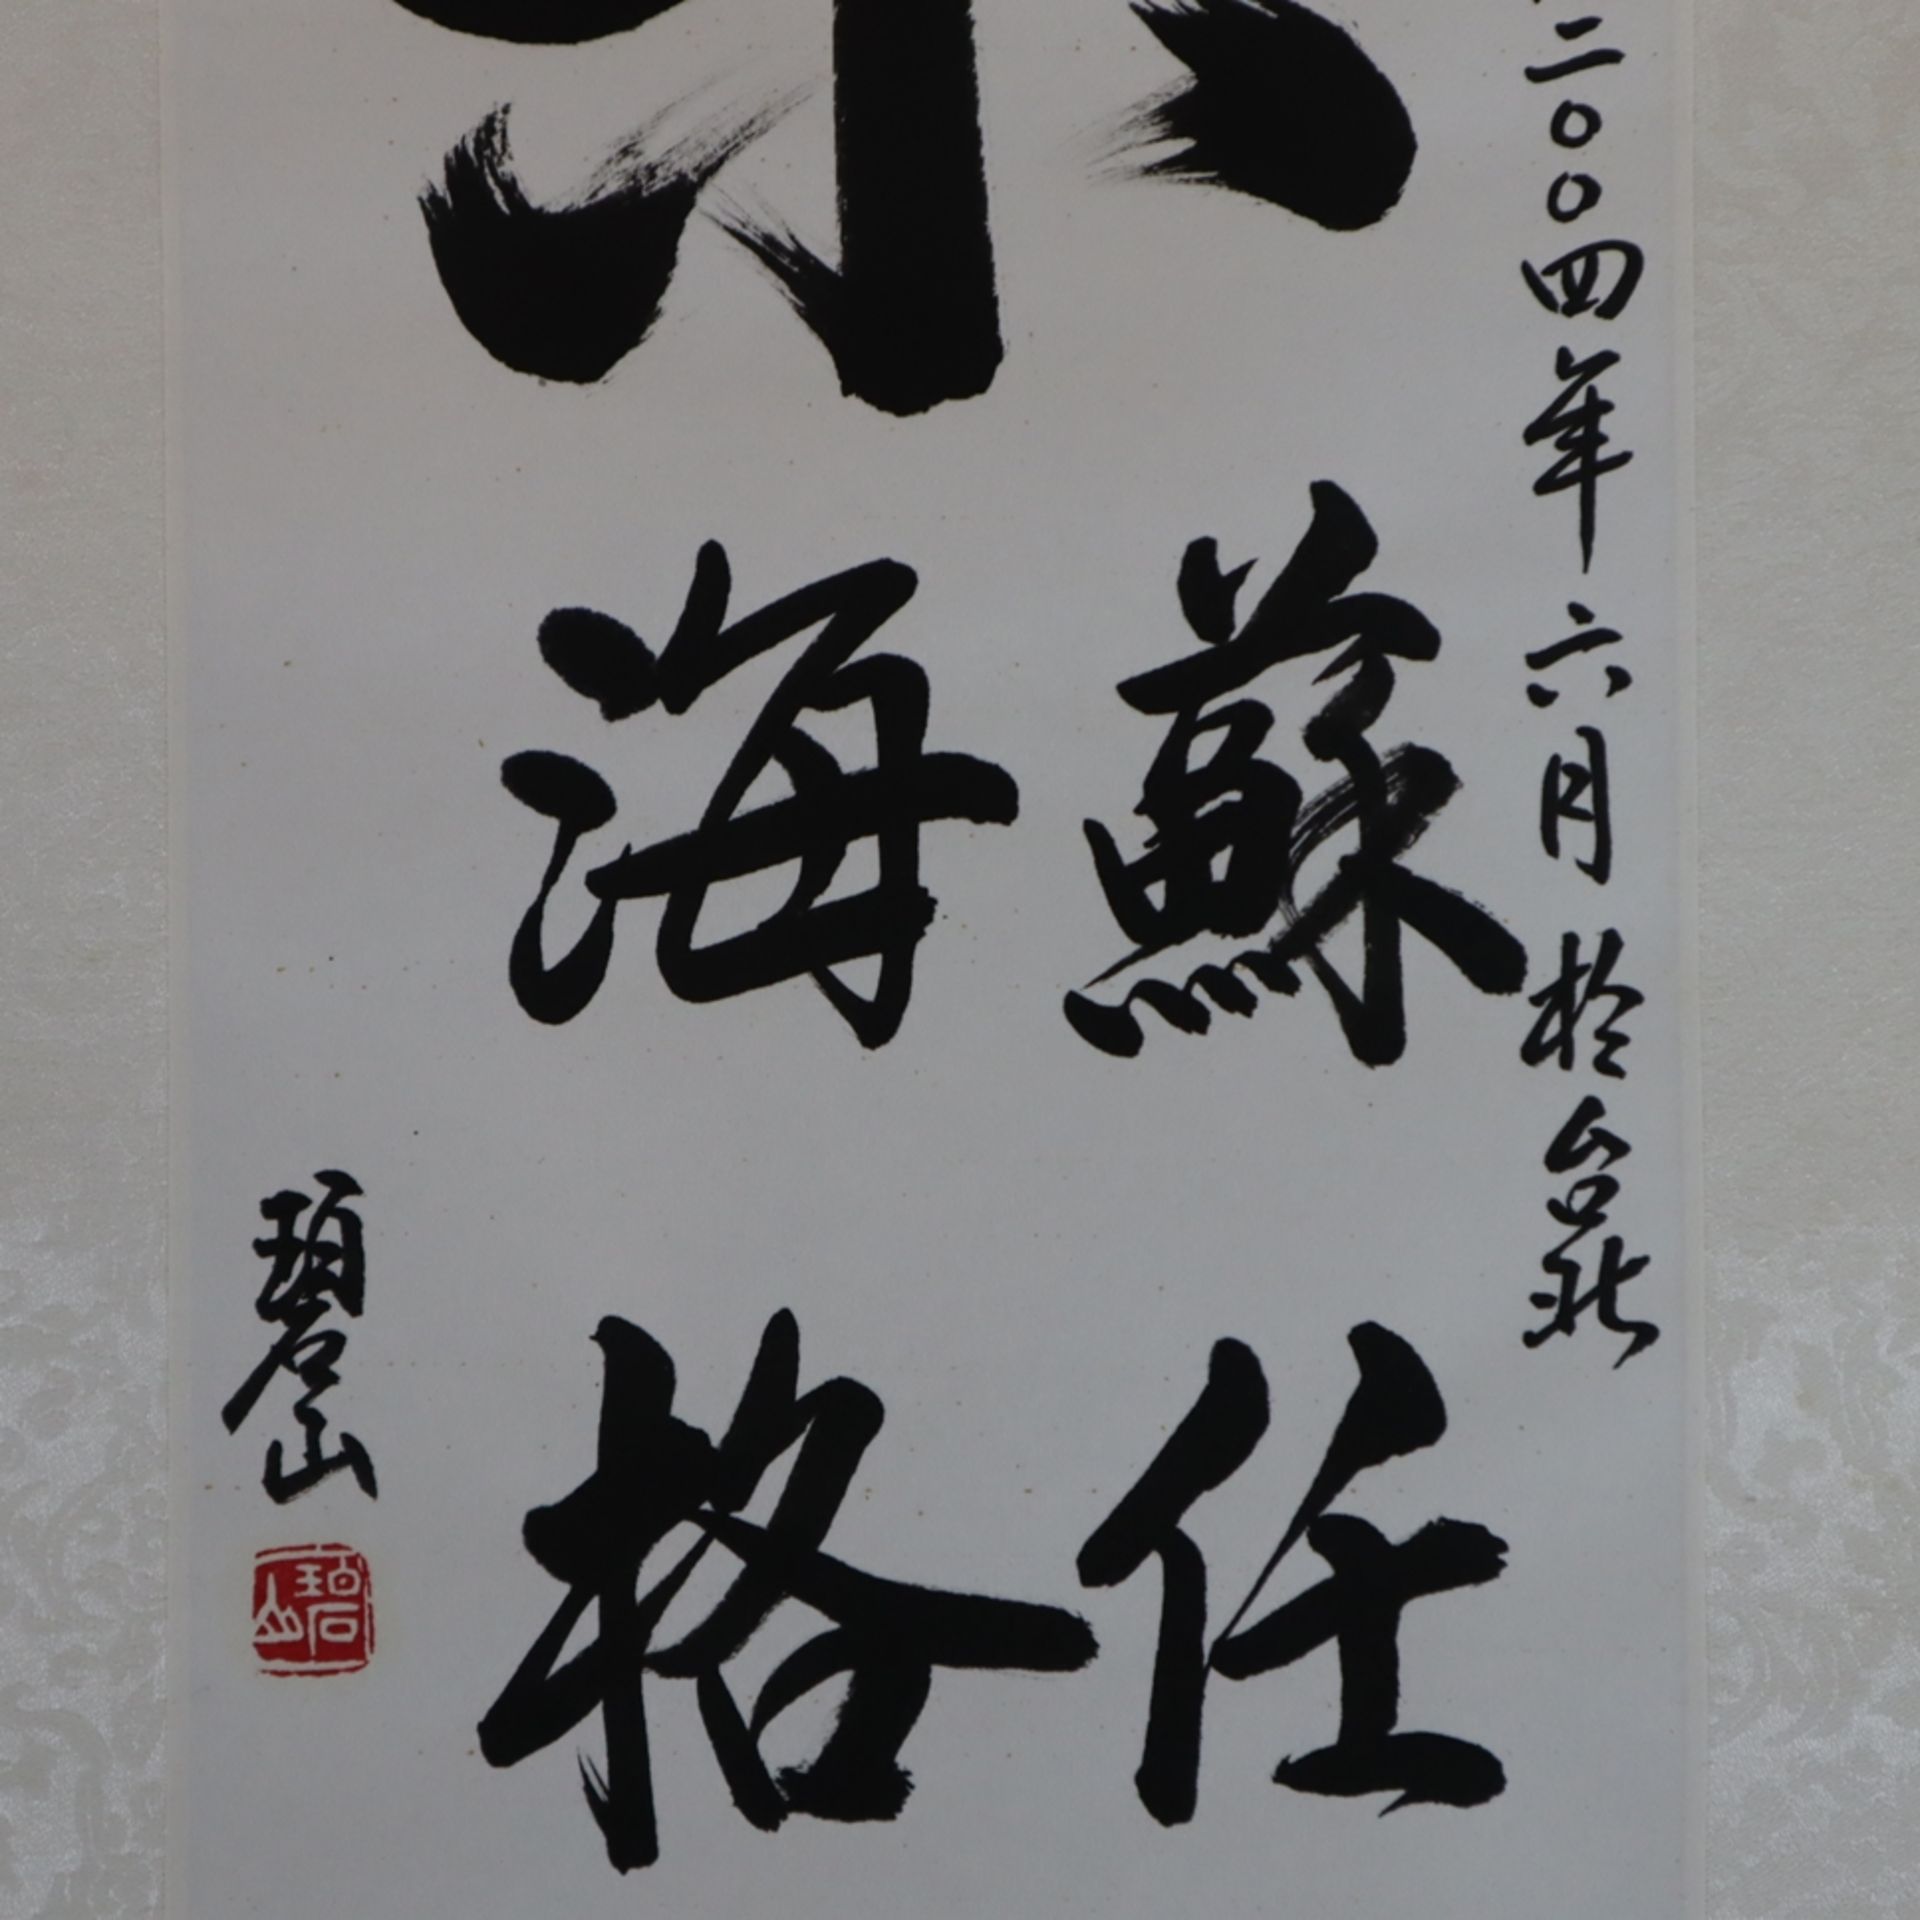 二〇〇四年六月於台北
蘇任
海格
碧山
碧山